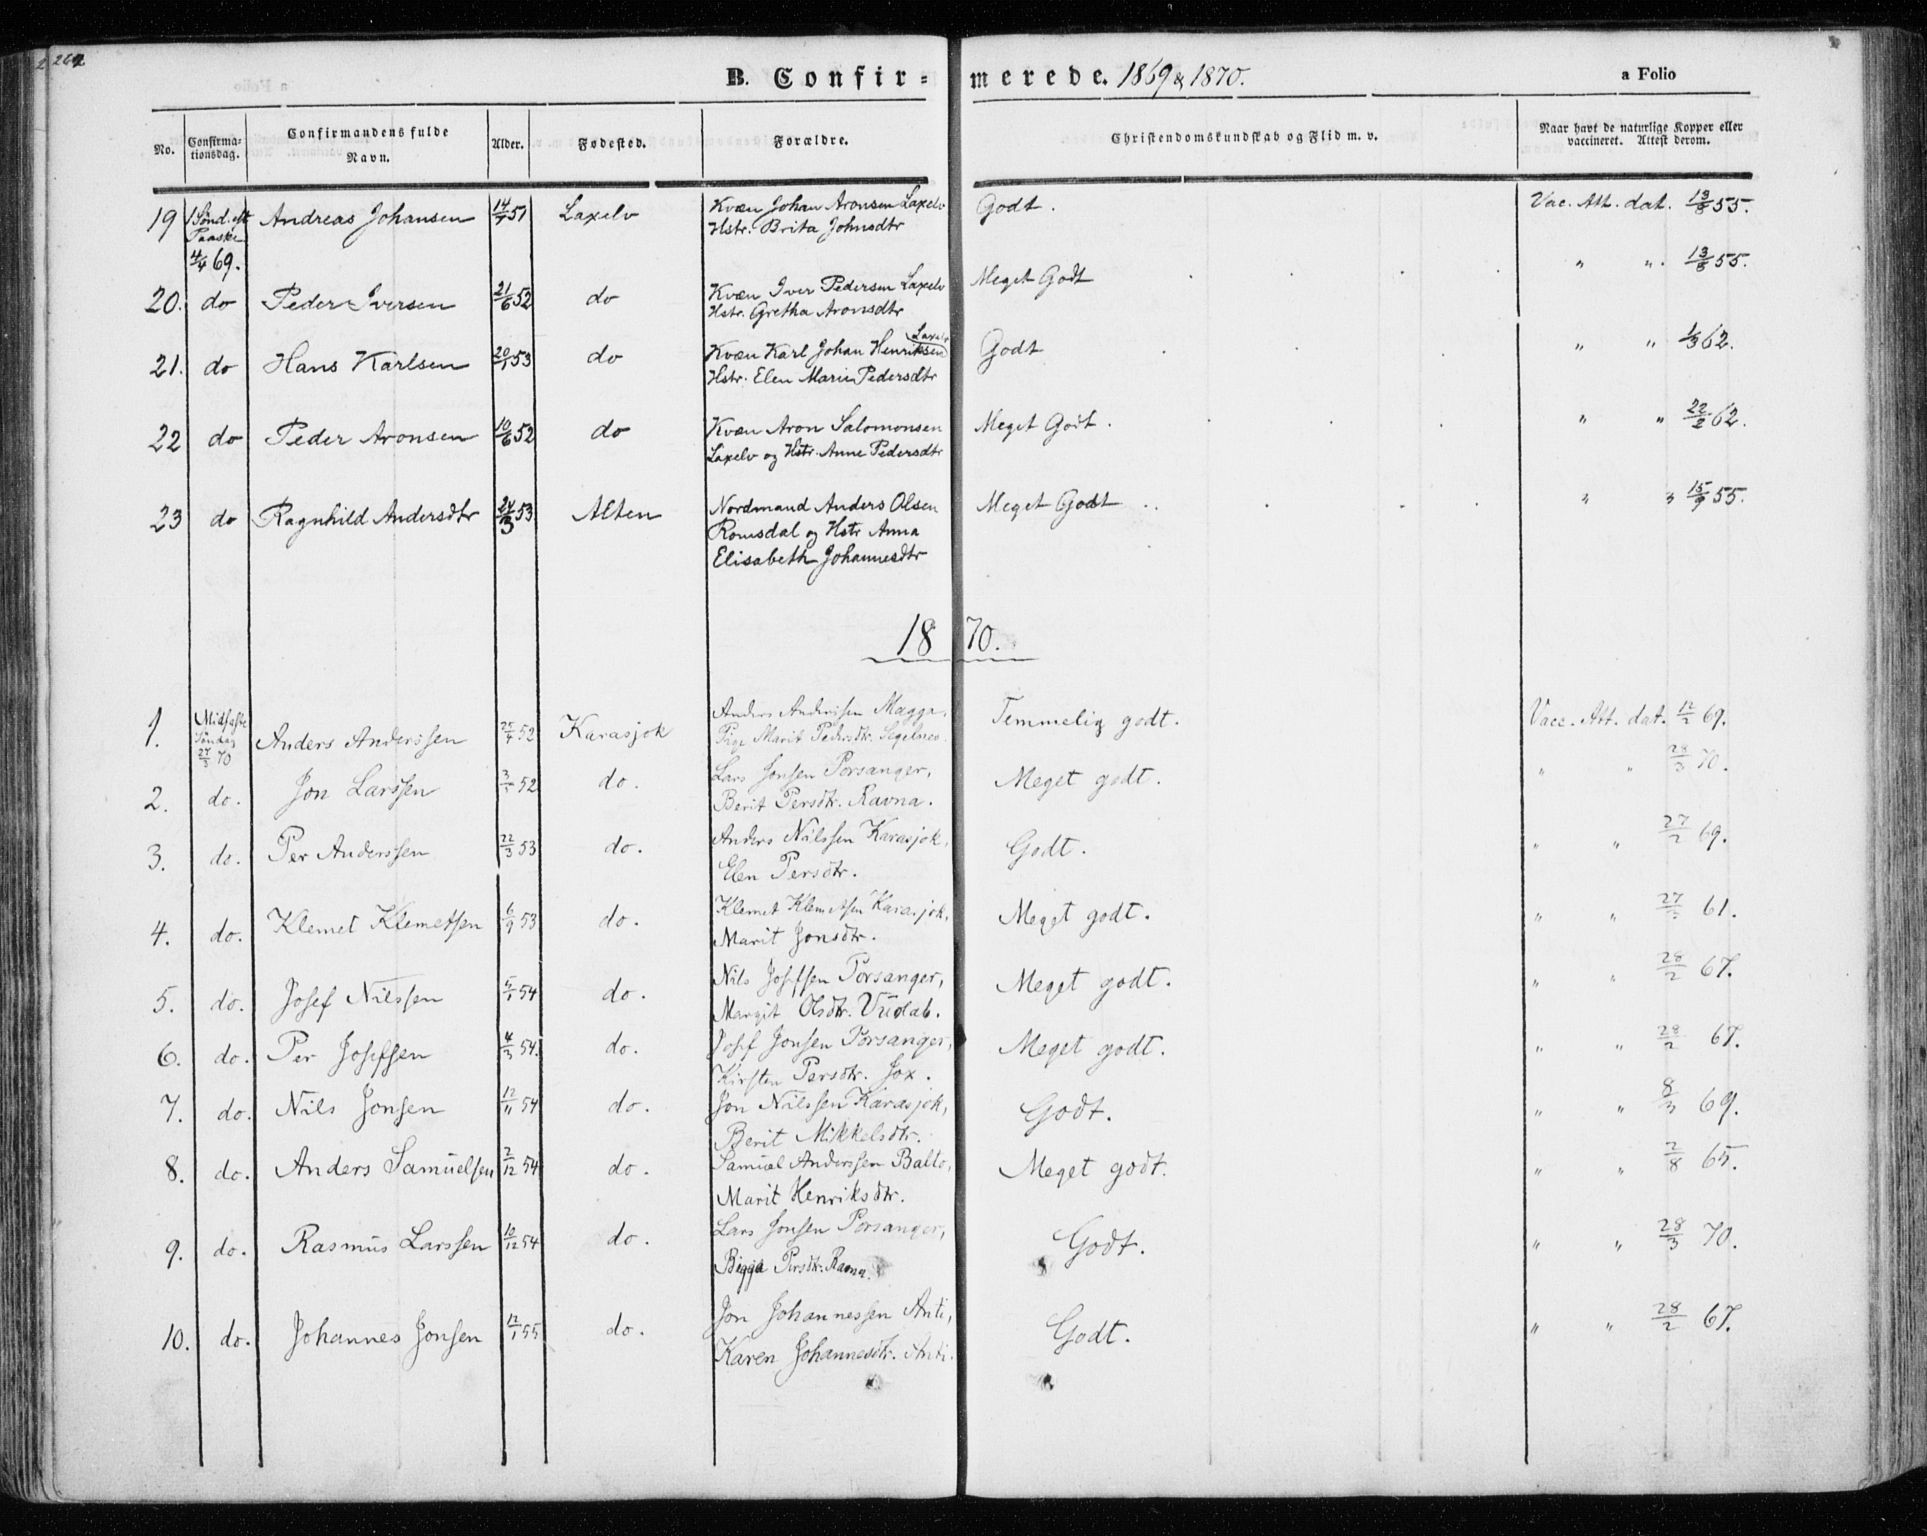 B. Confir= merede. 1869 & 1870. a Folio
No. Confirma-tionsdag. Confirmandens fulde Navn. Alder. Fødested. Forældre. Christendomskundskab og Flid m. v. Naar havt de naturlige Kopper eller vaccineret. Attest derom.
19 1 Sønd. eft Paaske 4/4 69. Andreas Johansen 51 Laxelv Kvæn Johan Aronsen Laxelv Godt. Vac. Att. dat. 55.
Hstr. Brita Johnsdtr
20. do Peder Iversen 21/6 52 do Kvæn Iver Pedersen Laxelv Meget Godt " " 55.
Hstr. Gretha Aronsdtr
21. do Hans Karlsen 53 do Kvæn Karl Johan Henriksen Laxelv Godt " " 62.
Hstr. Elen Marie Pedersdtr
22 do Peder Aronsen 10/6 52 do Kvæn Aron Salomonsen Meget Godt. " " 22/2 62.
Laxelv og Hstr. Anne Pedersdtr
23 do Ragnhild Andersdtr 24/3 53 Alten Nordmand Anders Olsen Meget Godt " " 15/9 55.
Romsdal og Hstr Anna
Elisabeth Johannesdtr
1870.
1. Midfaste Søndag 27/3 70 Anders Anderssen 25/4 52 Karasjok Anders Anderssen Magga, Temmelig godt. Vacc. Att. dat. 12/2 69.
Pige Marit Pedersdtr.
2. do. Jon Larssen 52 do. Lars Jonsen Porsanger, Meget godt. " " 28/3 70.
Berit Persdtr. Ravna.
3. do. Per Anderssen 22/3 53 do. Anders Nilssen Karasjok, Godt. " " 27/2 69.
Elen Persdtr.
4. do. Klemet Klemetsen 6/9 53 do. Klemet Klemetsen Karasjok, Meget godt. " " 61.
Marit Jonsdtr.
5. do. Josef Nilssen 54 do. Nils Josefsen Porsanger, Meget godt. " " 28/2 67.
Margit Olsdtr. Vuolab.
6. do. Per Josefsen 4/3 54. do. Josef Jonsen Porsanger, Meget godt. " " 28/2 67.
Kirsten Persdtr. Jox.
7. do. Nils Jonsen 12/11 54 do. Jon Nilssen Karasjok, Godt. " " 8/3 69.
Berit Mikkelsdtr.
8. do. Anders Samuelsen 2/12 54 do. Samuel Anderssen Balto, Meget godt. " " 2/8 65.
Marit Henriksdtr.
9. do. Rasmus Larssen 54 do. Lars Jonsen Porsanger, Godt. " " 28/3 70.
Bigga Persdtr. Ravna.
10. do. Johannes Jonsen 12/1 55 do. Jon Johannessen Anti, Godt. " " 28/2 67.
Karen Johannesdtr. Anti.